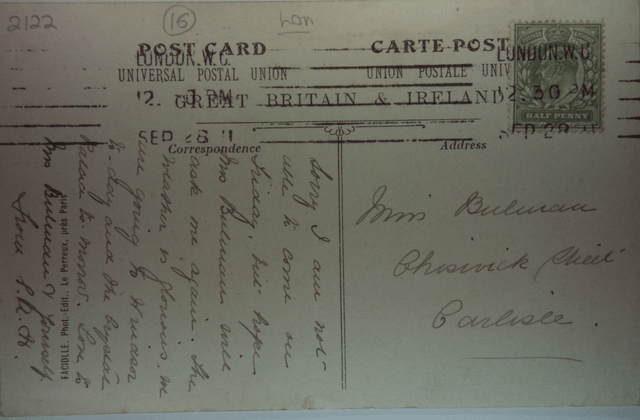 2122
16
Lon
POST CARD CARTE-POST
LONDON.W.C. LONDON.W.C.
UNIVERSAL POSTAL UNION UNION POSTALE UNIV
12. PM 12.30 PM
GREAT BRITAIN & IRELAND
SEP 28 11 SEP 28 11
HALF PENNY
Correspondence Address
Sorry I am not
able to come on
Friday, but hope
Mrs Bulman will
ask me again. The
weather is glorious, we
are going to Windsor
to-day and the Crystal
Palace to-morrow. Love to
Mrs Bulman & yourself
from
FACIOLLE, Phot.-Edit., Le Perreux, près Paris
Miss Bulman
Chiswick Street
Carlisle.